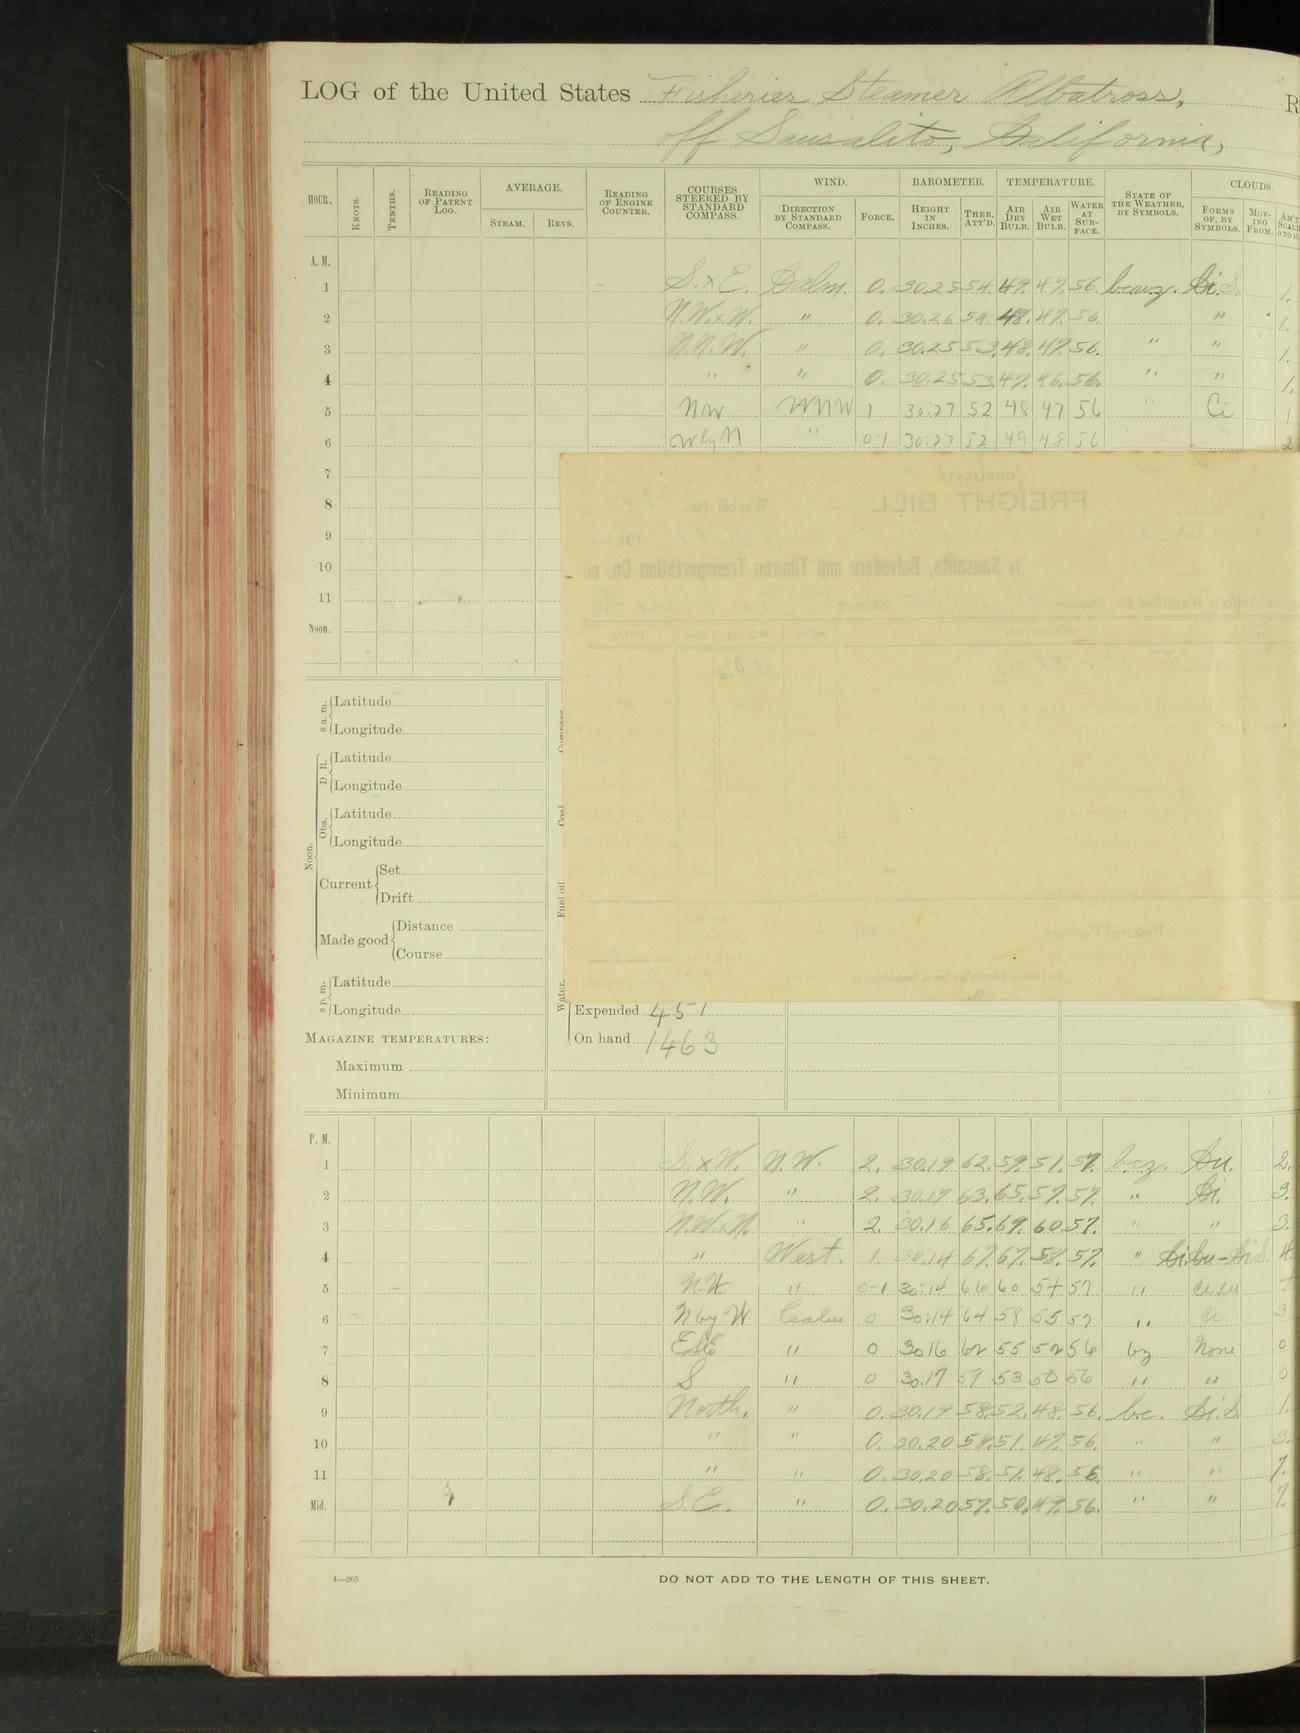 LOG of the United States Fisheries Steamer Albatross, R
off Sausalito, California,
HOUR. KNOTS. TENTHS. READING OF PATENT LOG. AVERAGE. STEAM. REVS. READING OF ENGINE COUNTER. COURSES STEERED BY STANDARD COMPASS. WIND. DIRECTION BY STANDARD COMPASS. FORCE. BAROMETER. HEIGHT IN INCHES. THER. ATT'D. TEMPERATURE. AIR DRY BULB. AIR WET BULB. WATER AT SURFACE. STATE OF THE WEATHER, BY SYMBOLS. CLOUDS. FORMS OF, BY SYMBOLS. MOVING FROM. AM'T SCALE 0 TO 10
A. M.
1 S.xE. Calm. 0. 30.25 54. 49. 47. 56. Ci.S. 1.
2 N.W.xW. " 0. 30.26 54. 48. 47. 56. " 1.
3 N.N.W. " 0. 30.25 53. 48. 47. 56. " " 1.
4 " " 0. 30.25 53. 47. 46. 56. " " 1.
5 NW WNW 1 30:27 52 48 47 56 " Ci 1
6 W by N " 0-1 30:27 52 49 48 56 2
7
8
9
10
11
Noon.
DUPLICATE
FREIGHT BILL
Waybill No.
191
to Sausalito, Belvedere and Tiburon Transportation Co. Dr.
TOTAL
Received Payment
191
8 a. m. Latitude
Longitude
Noon. D. R. Latitude
Longitude
Obs. Latitude
Longitude
Current Set
Drift
Made good Distance
Course
8 p. m. Latitude
Longitude
MAGAZINE TEMPERATURES:
Maximum
Minimum
Compass
Coal
Fuel oil.
Water.
Expended 451
On hand 1463
P. M.
1 S.xW. N.W. 2. 30.19 62. 59. 51. 57. bcz. Cu. 2.
2 N.W. " 2. 30.17 63. 65. 57. 57. " Ci. 3.
3 N.W.xN. " 2. 30.16 65. 69. 60. 57. " " 3.
4 " West. 1. 30.14 67. 67. 58. 57. " Ci.Cu-Ci.S. 4.
5 NW " 0-1 30:14 66 60 54 57 " Ci.cu
6 N by W Calm 0 30:14 64 58 55 57 " Ci 3
7 ESE " 0 30 16 62 55 52 56 bz None 0
8 S " 0 30:17 59 53 50 56 " " 0
9 North. " 0. 30.19 58. 52. 48. 56. bc. Ci.S. 1.
10 " " 0. 30.20 58. 51. 47. 56. " " 3.
11 " " 0. 30.20 58. 51. 48. 56. " " 7.
Mid. S.E. " 0. 30.20 57. 50. 49. 56. " " 7.
4—265
DO NOT ADD TO THE LENGTH OF THIS SHEET.